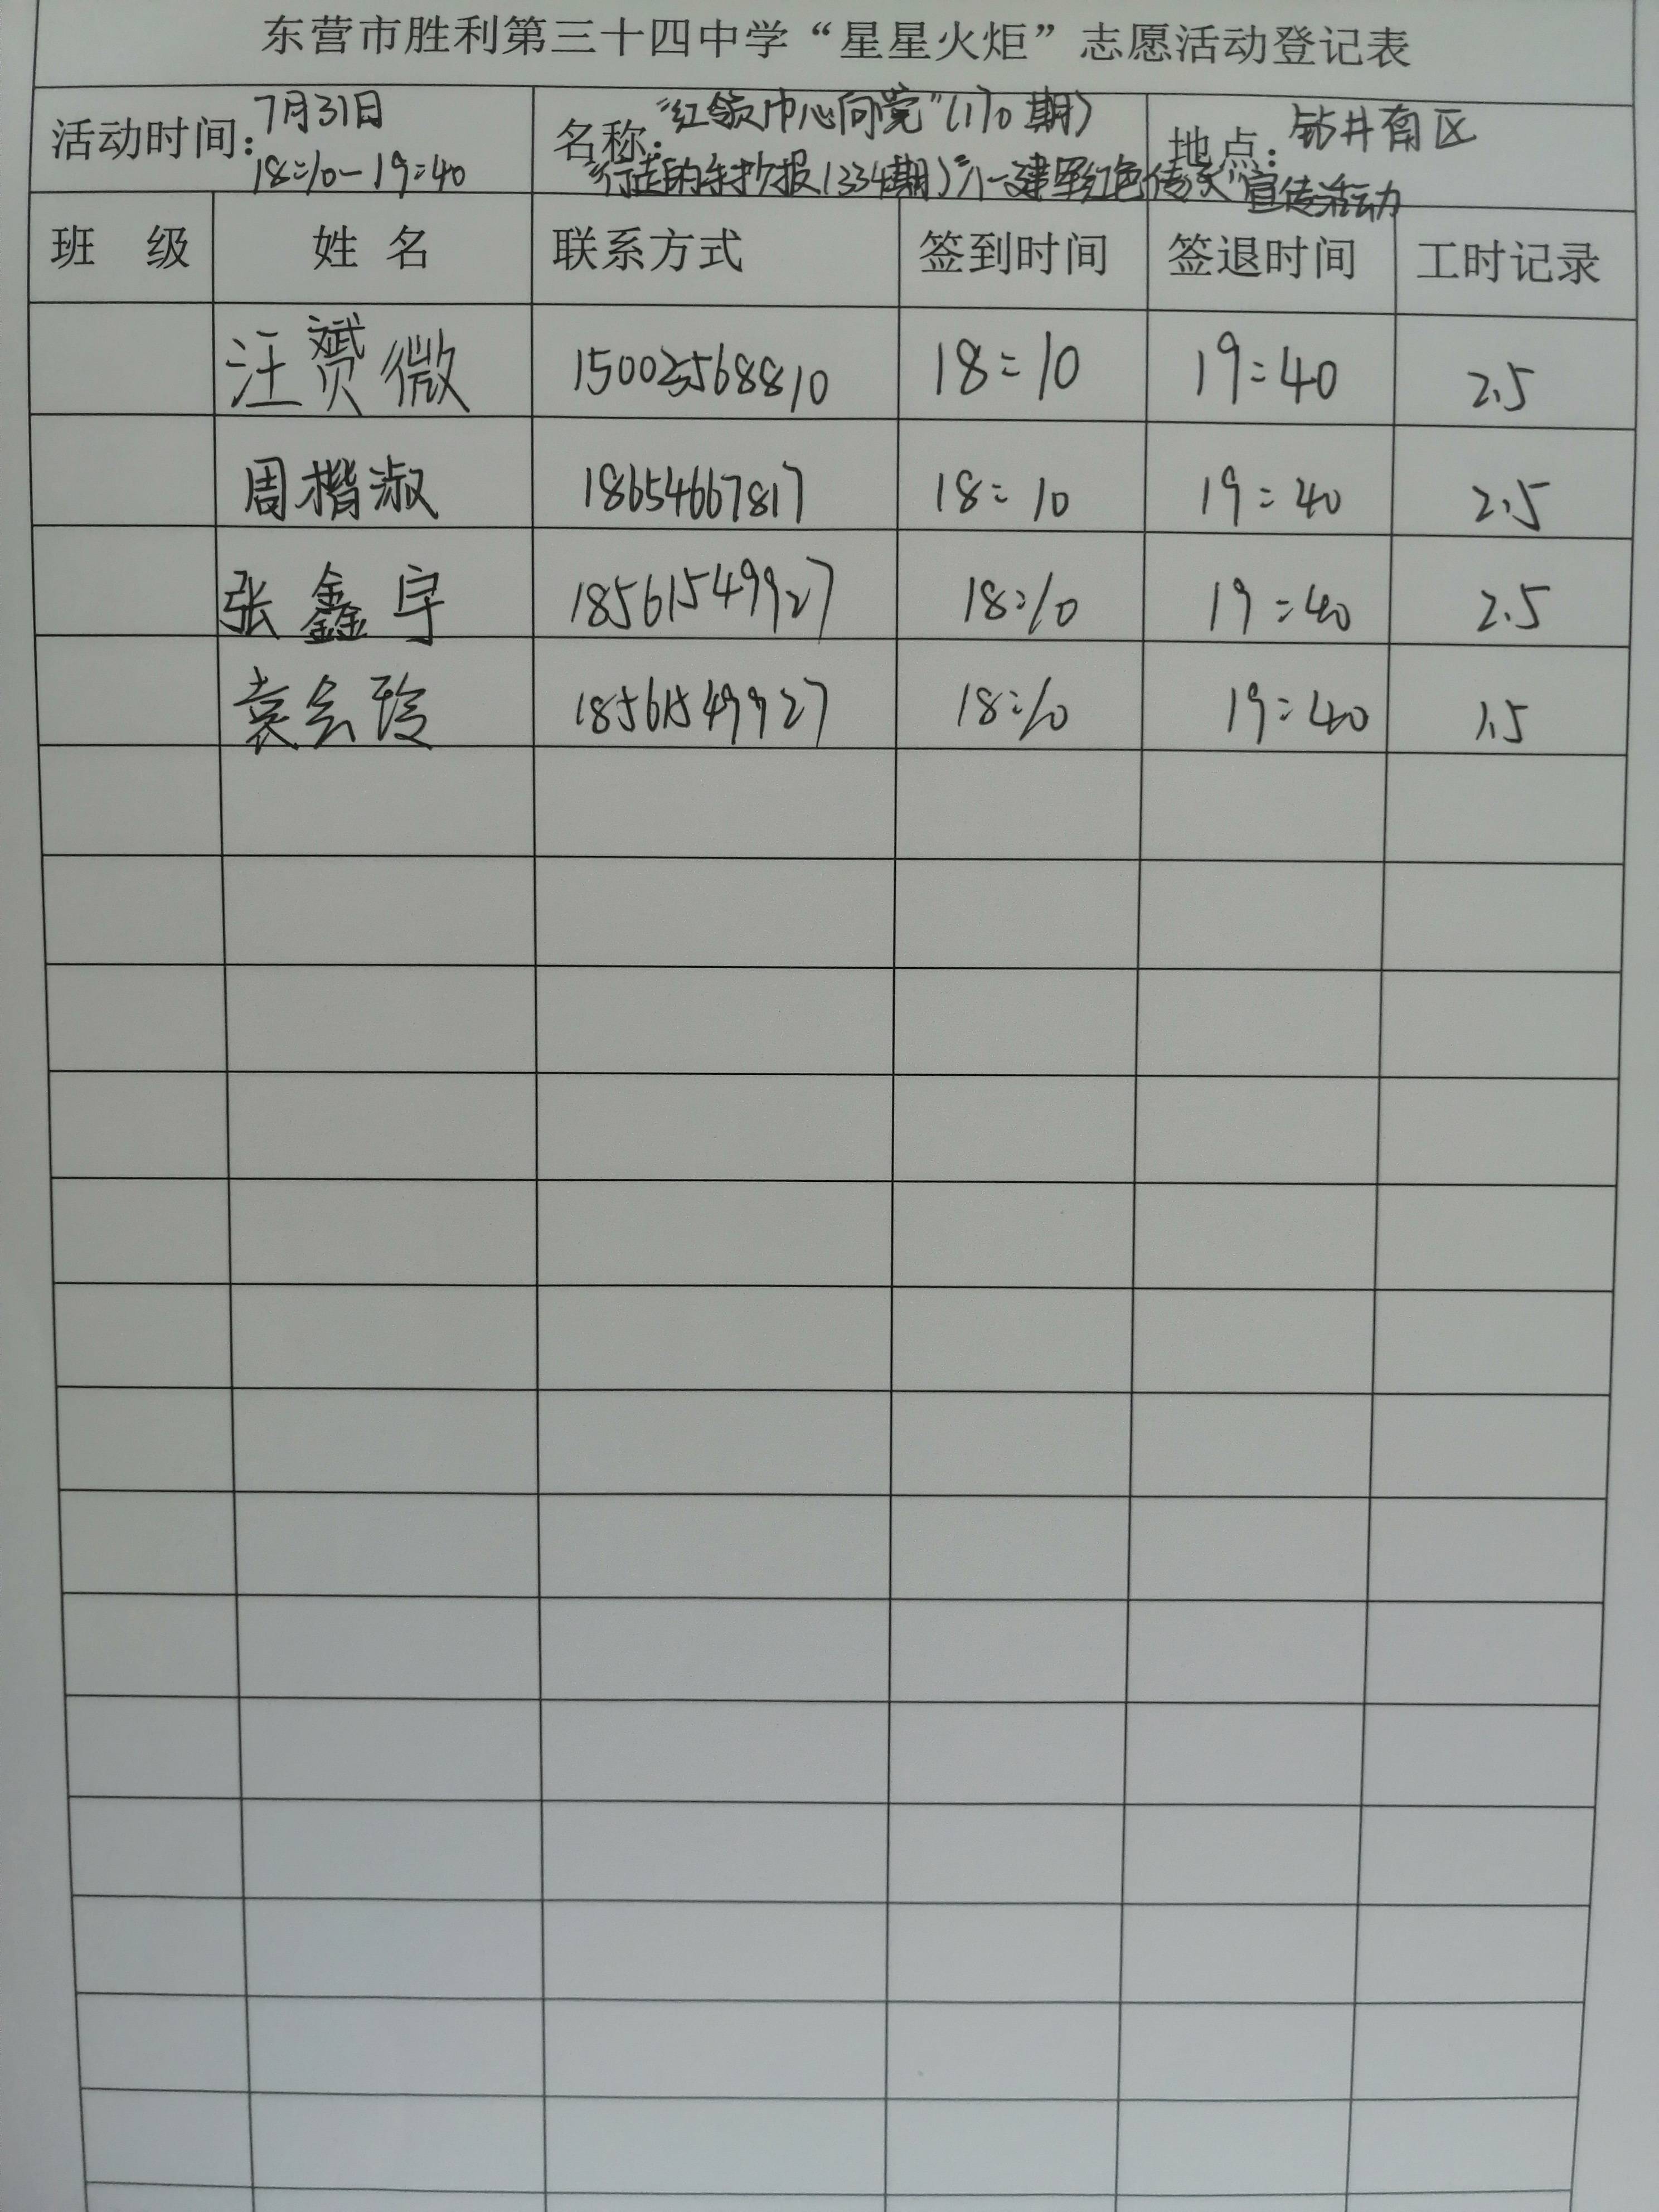 东营市胜利第三十四中学“星星火炬”志愿活动登记表
活动时间: 7月31日 18:10-19:40
名称: “红领巾心向党”(170期)
“行走的手抄报(334期)”八一建军红色传承”宣传活动
地点: 钻井南区
班 级 姓 名 联系方式 签到时间 签退时间 工时记录
汪赟微 15002568810 18:10 19:40 2.5
周楷淑 18654667817 18:10 19:40 2.5
张鑫宇 18561549927 18:10 19:40 2.5
袁会玲 18561549927 18:10 19:40 1.5